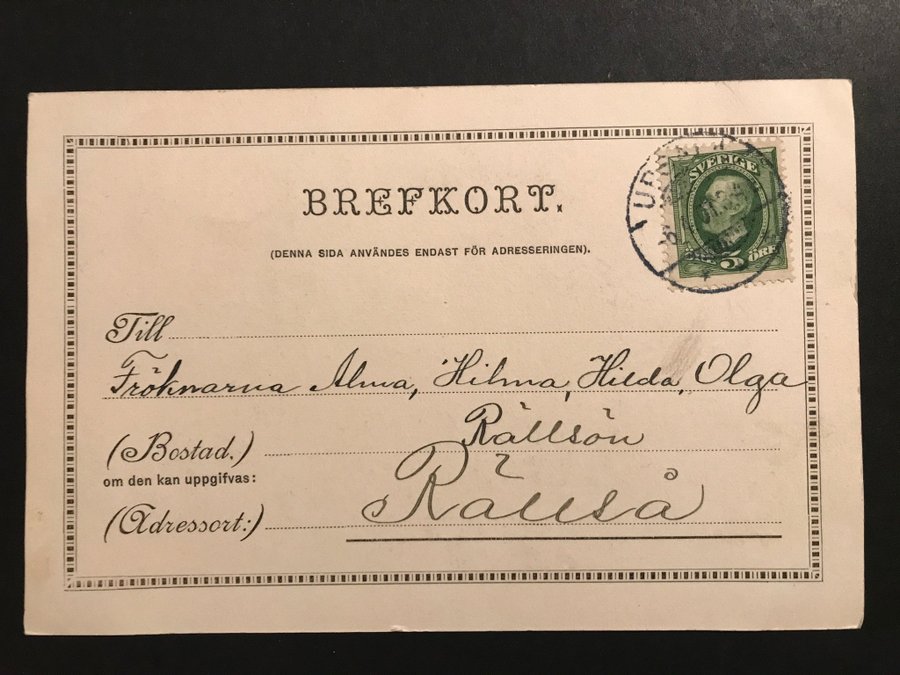 BREFKORT.
(DENNA SIDA ANVÄNDES ENDAST FÖR ADRESSERINGEN).
SVERIGE
5 ÖRE
Till
Fröknarna Alma, Hilma, Hilda, Olga
Rällsön
(Bostad.)
om den kan uppgifvas:
Rällså
(Adressort:)